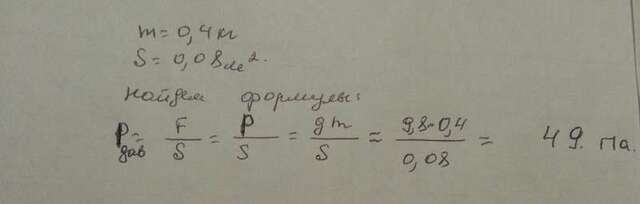 m = 0,4 кг
S = 0,08 м².
Найдем формулы:
P дав = F/S = P/S = gm/S = 9,8·0,4/0,08 = 49. Па.